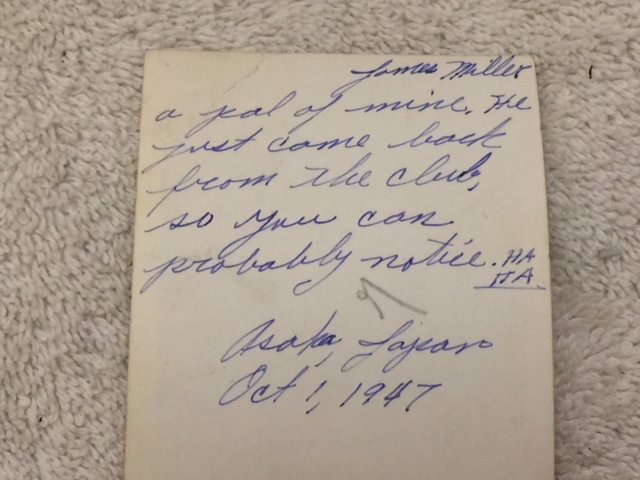 James Miller
a pal of mine. He
just came back
from the club,
so you can
probably notice. HA
HA.
Asaka, Japan
Oct 1, 1947